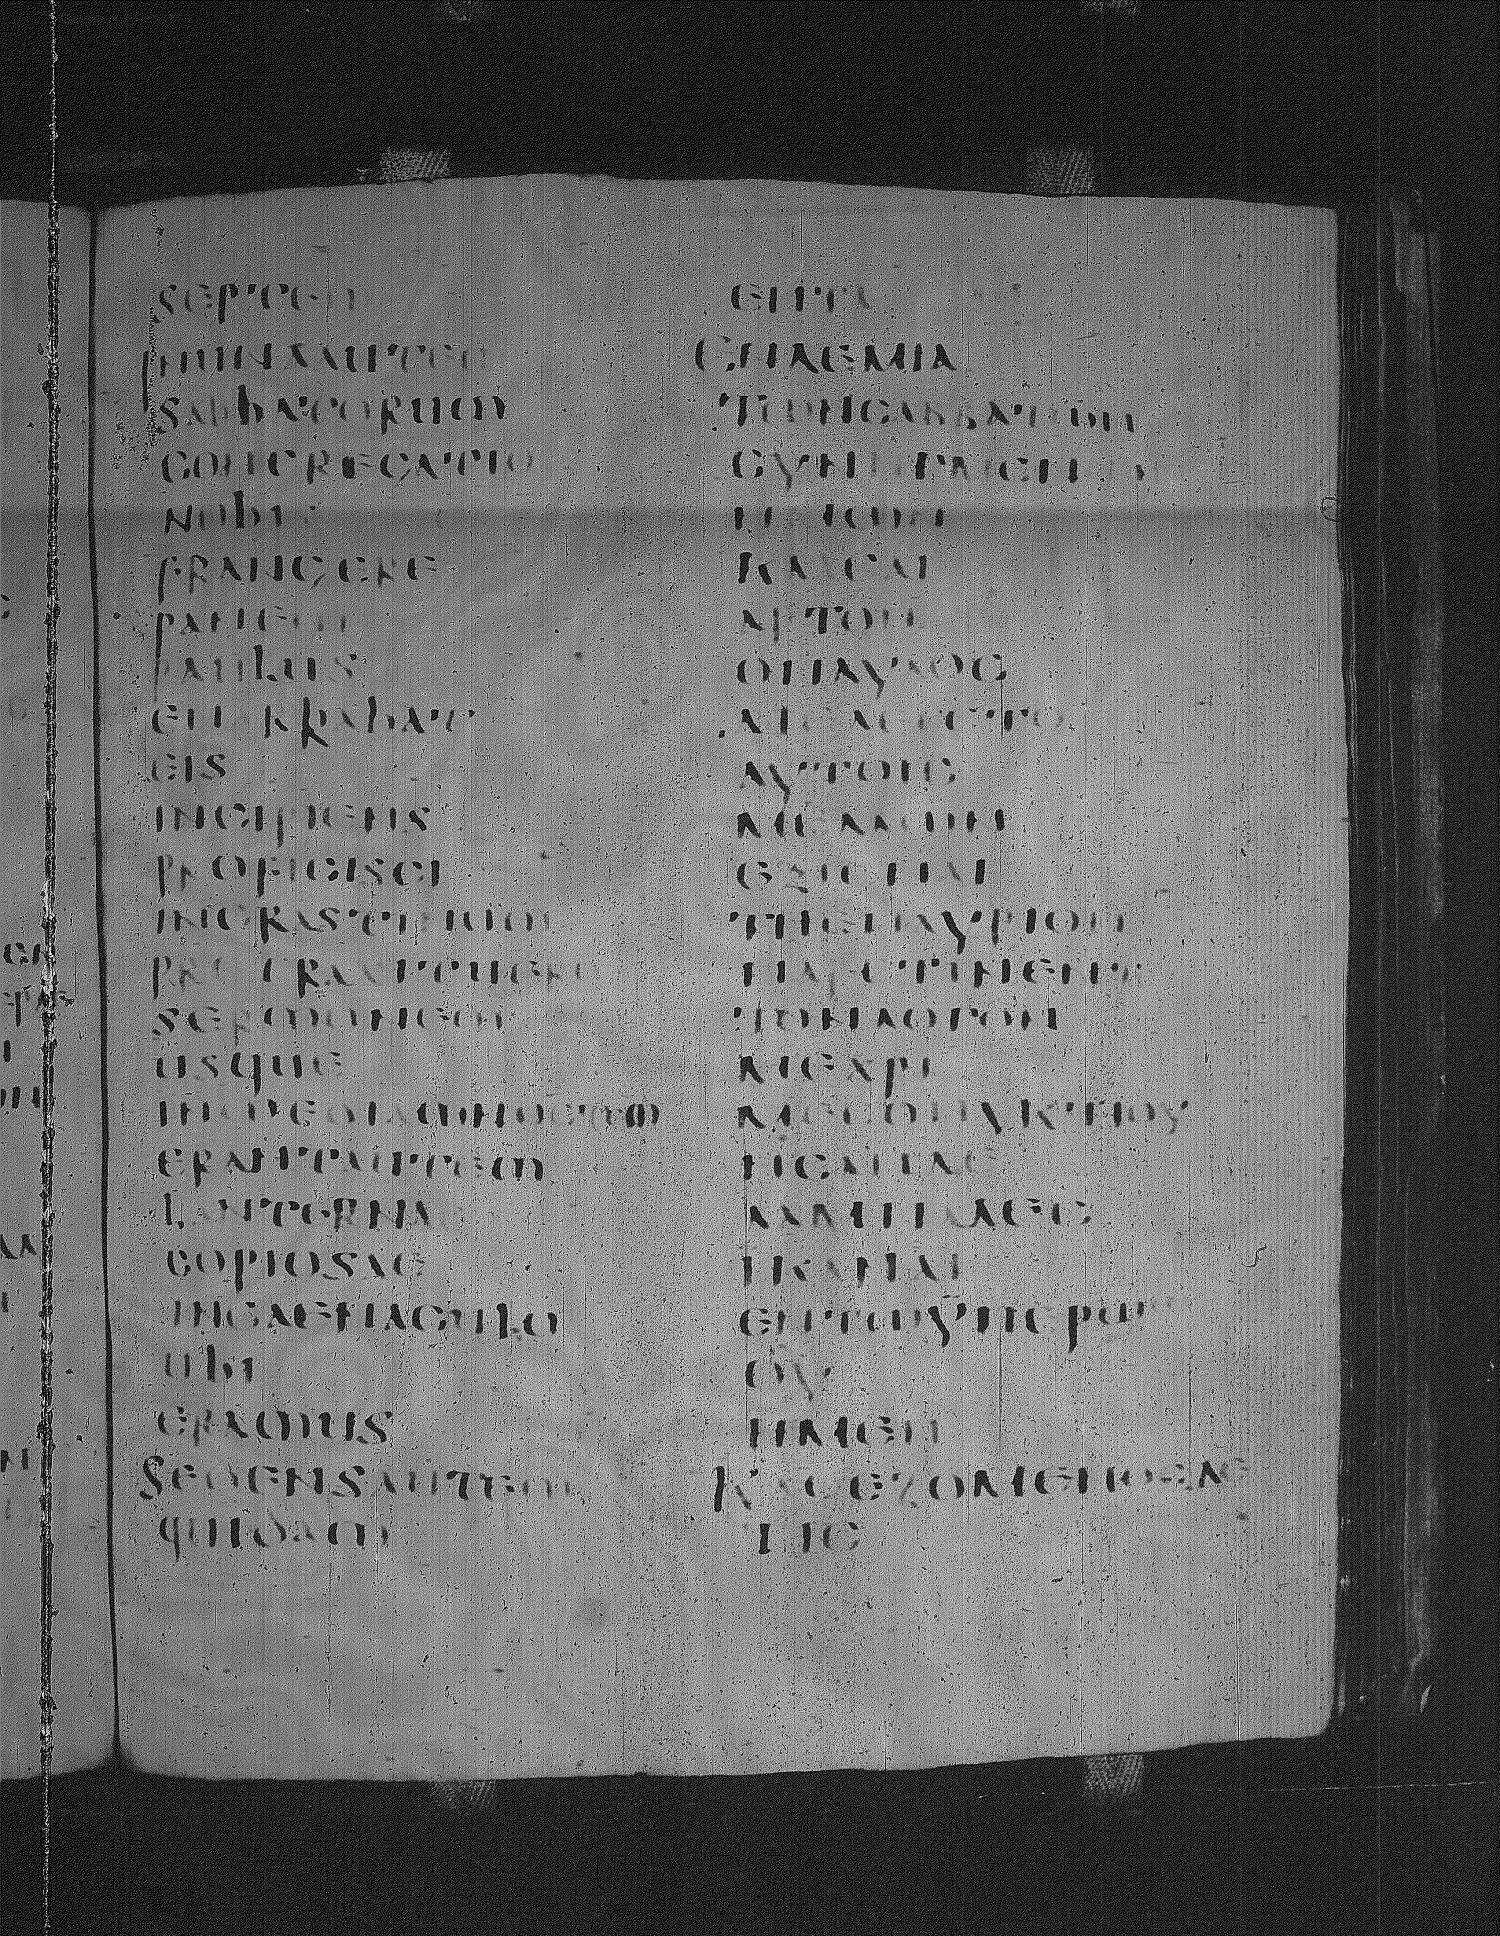 septem
INUNAAUTEM
sabbatorum
congregatis
nobis
frangere
panem
paulus
enarrabat
eis
incipiens
proficisci
incrastinum
sermonem
usque
inmediamnoctem
erantautem
lanternae
copiosae
incaenaculo
ubi
eramus
Sedensautem
quidam
ΕΠΤΑ
ΕΝΔΕΜΙΑ
ΤΩΝϹΑΒΒΑΤΩΝ
ϹΥΝΗΓΜΕΝΩΝ
ΗΜΩΝ
ΚΛΑϹΑΙ
ΑΡΤΟΝ
ΟΠΑΥΛΟϹ
ΔΙΕΛΕΓΕΤΟ
ΑΥΤΟΙϹ
ΜΕΛΛΩΝ
ΕΞΙΕΝΑΙ
ΤΗΕΠΑΥΡΙΟΝ
ΠΑΡΕΤΙΝΕΝΤΕ
ΤΟΝΛΟΓΟΝ
ΜΕΧΡΙ
ΜΕϹΟΝΥΚΤΙΟΥ
ΗϹΑΝΔΕ
ΛΑΜΠΑΔΕϹ
ΙΚΑΝΑΙ
ΕΝΤΩΥΠΕΡΩΩ
ΟΥ
ΗΜΕΝ
ΚΑΘΕΖΟΜΕΝΟϹΔΕ
ΤΙϹ